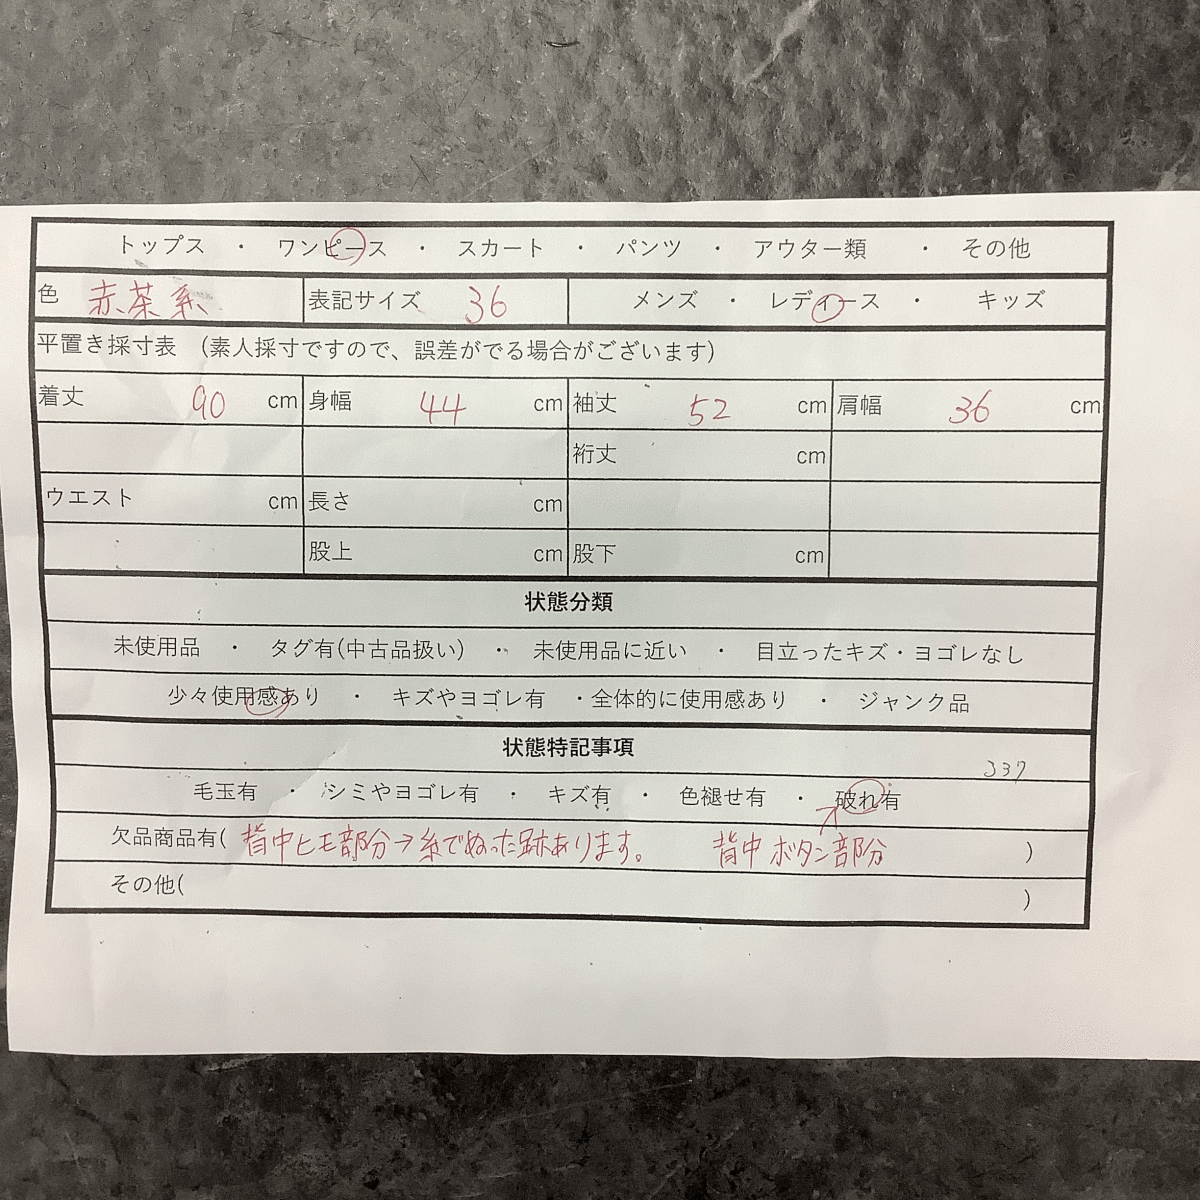 トップス ・ ワンピース ・ スカート ・ パンツ ・ アウター類 ・ その他
色 赤茶系 表記サイズ 36 メンズ ・ レディース ・ キッズ
平置き採寸表 (素人採寸ですので、誤差がでる場合がございます)
着丈 90 cm 身幅 44 cm 袖丈 52 cm 肩幅 36 cm
裄丈 cm
ウエスト cm 長さ cm
股上 cm 股下 cm
状態分類
未使用品 ・ タグ有(中古品扱い) ・ 未使用品に近い ・ 目立ったキズ・ヨゴレなし
少々使用感あり ・ キズやヨゴレ有 ・全体的に使用感あり ・ ジャンク品
状態特記事項
337
毛玉有 ・ シミやヨゴレ有 ・ キズ有 ・ 色褪せ有 ・ 破れ有
欠品商品有( 背中ヒモ部分→糸でぬった跡あります。 背中ボタン部分 )
その他( )